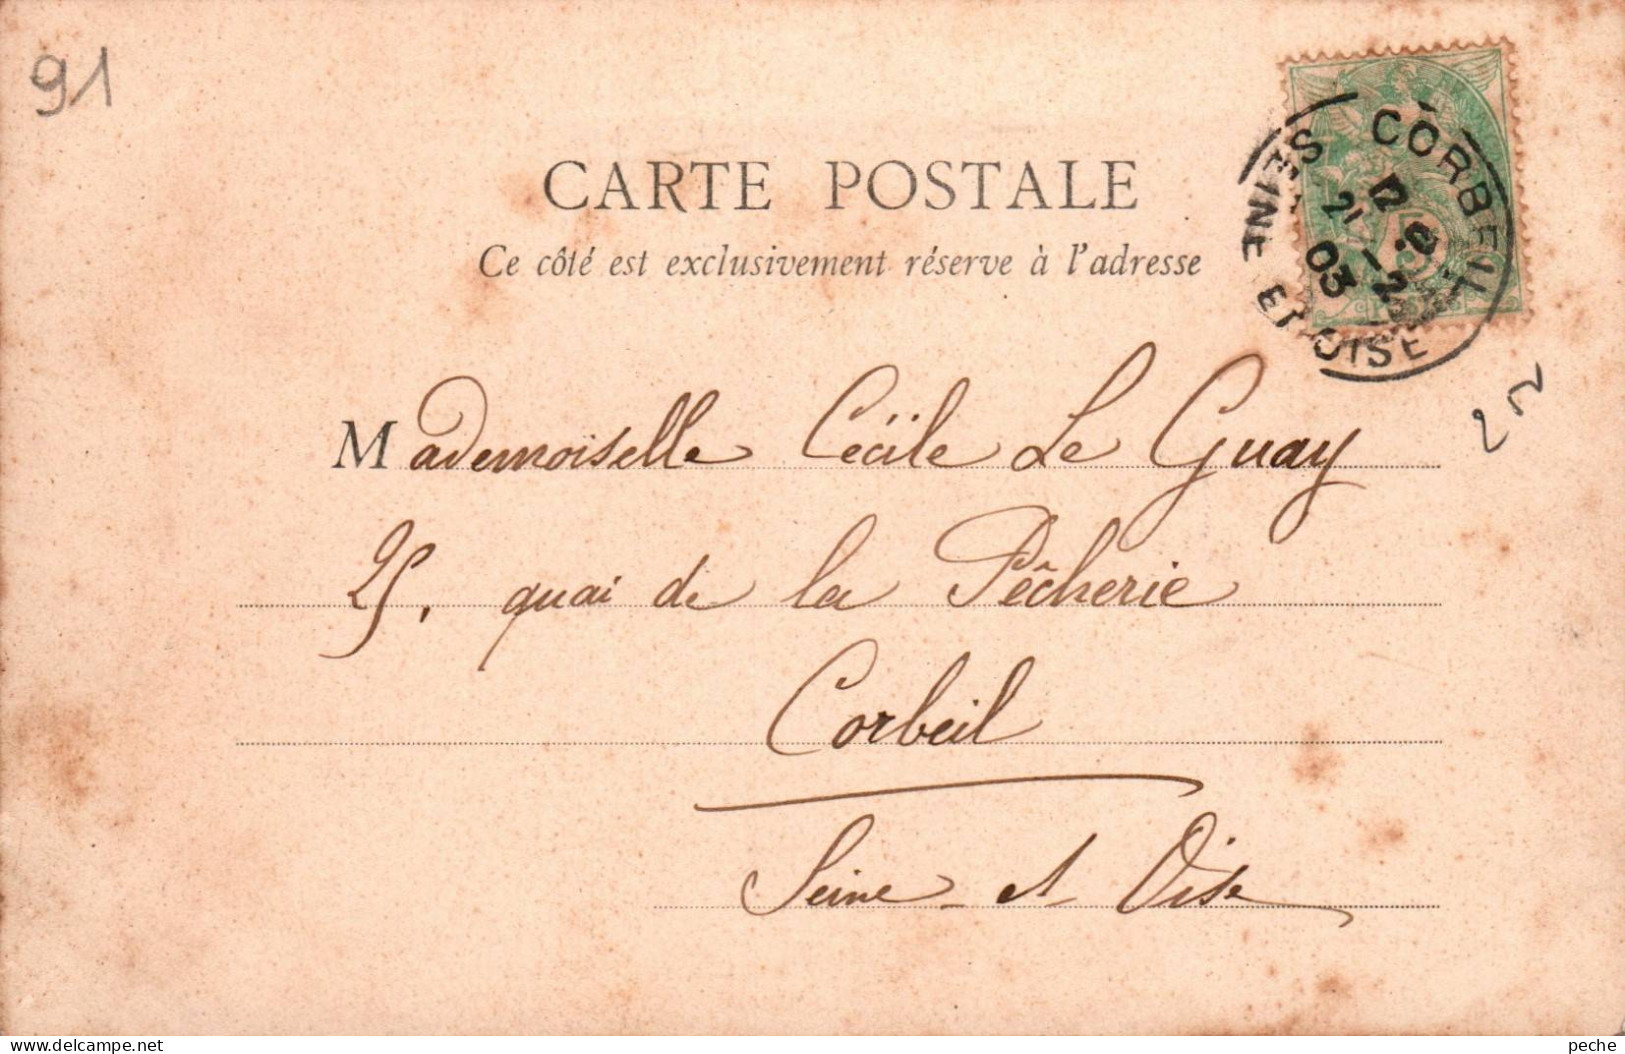 91
CARTE POSTALE
Ce côté est exclusivement réservé à l'adresse
CORBEIL
SEINE ET OISE
21 - 2
03
5
Mademoiselle Cécile Le Guay
25, quai de la Pêcherie
Corbeil
Seine-et-Oise
delcampe.net
peche